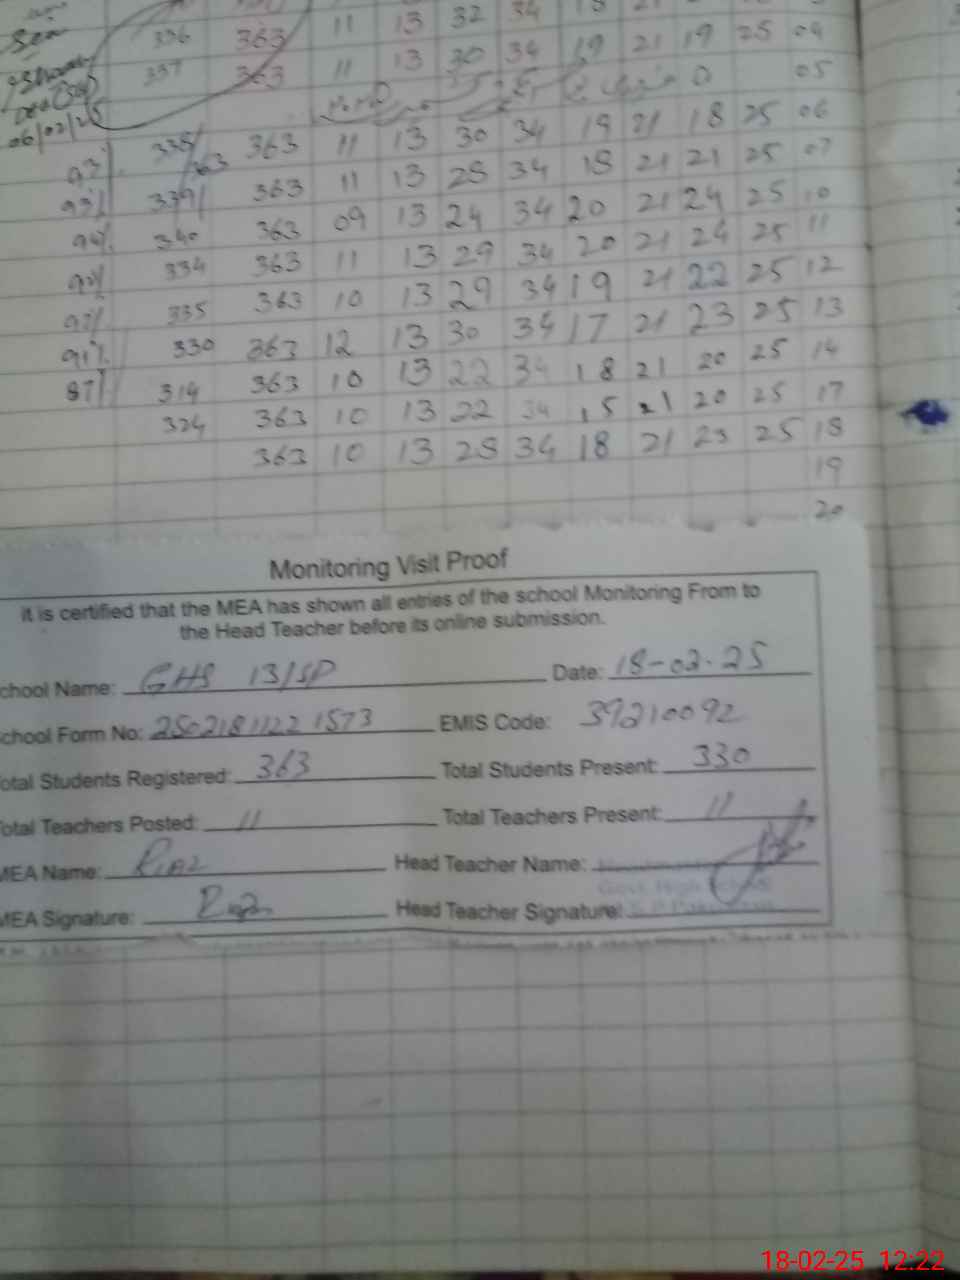 336 363 11 13 32 34 18 21
337 363 11 13 30 34 19 21 19 25 04
05
06/02/25
338/363 363 11 13 30 34 19 21 18 25 06
93% 339/ 363 11 13 28 34 18 21 21 25 07
94% 340 363 09 13 24 34 20 21 24 25 10
334 363 11 13 29 34 20 21 24 25 11
92% 335 363 10 13 29 34 19 21 22 25 12
91% 330 363 12 13 30 34 17 21 23 25 13
87% 314 363 10 13 22 34 18 21 20 25 14
324 363 10 13 22 34 15 21 20 25 17
363 10 13 28 34 18 21 23 25 18
19
20
Monitoring Visit Proof
it is certified that the MEA has shown all entries of the school Monitoring From to
the Head Teacher before its online submission.
chool Name: GHS 13/SP Date: 18-02-25
chool Form No: 2502181122 1573 EMIS Code: 39210092
otal Students Registered: 363 Total Students Present: 330
Total Teachers Posted: 11 Total Teachers Present: 11
MEA Name: Riaz Head Teacher Name:
MEA Signature: Riaz Head Teacher Signature:
Govt. High School
18-02-25 12:22